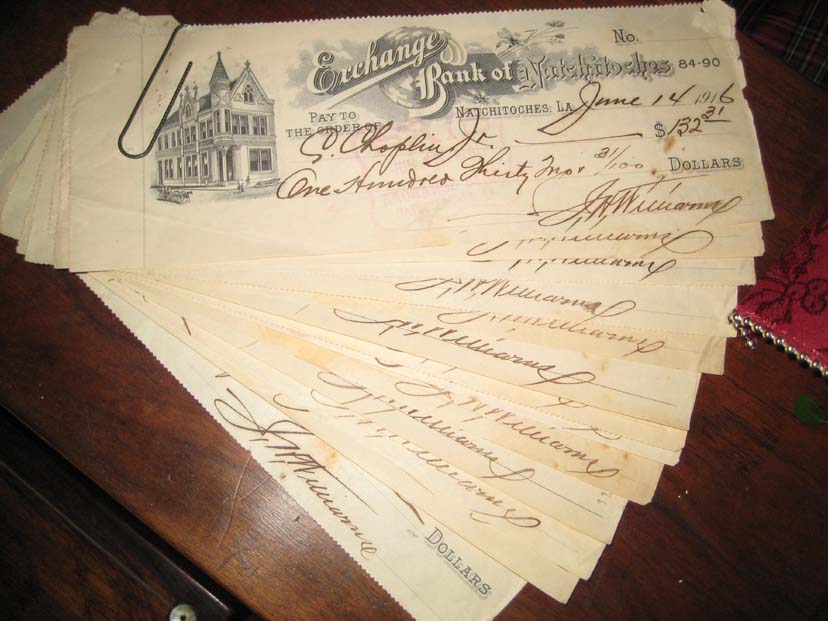 Exchange Bank of Natchitoches
No.
84-90
Natchitoches, La. June 14 1916
Pay to
the order of S. Chaplin, Jr. $132 31
One Hundred Thirty Two 31/100 Dollars
J. H. Williams
J. H. Williams
J. H. Williams
J. H. Williams
J. H. Williams
J. H. Williams
J. H. Williams
J. H. Williams
J. H. Williams
J. H. Williams
Dollars